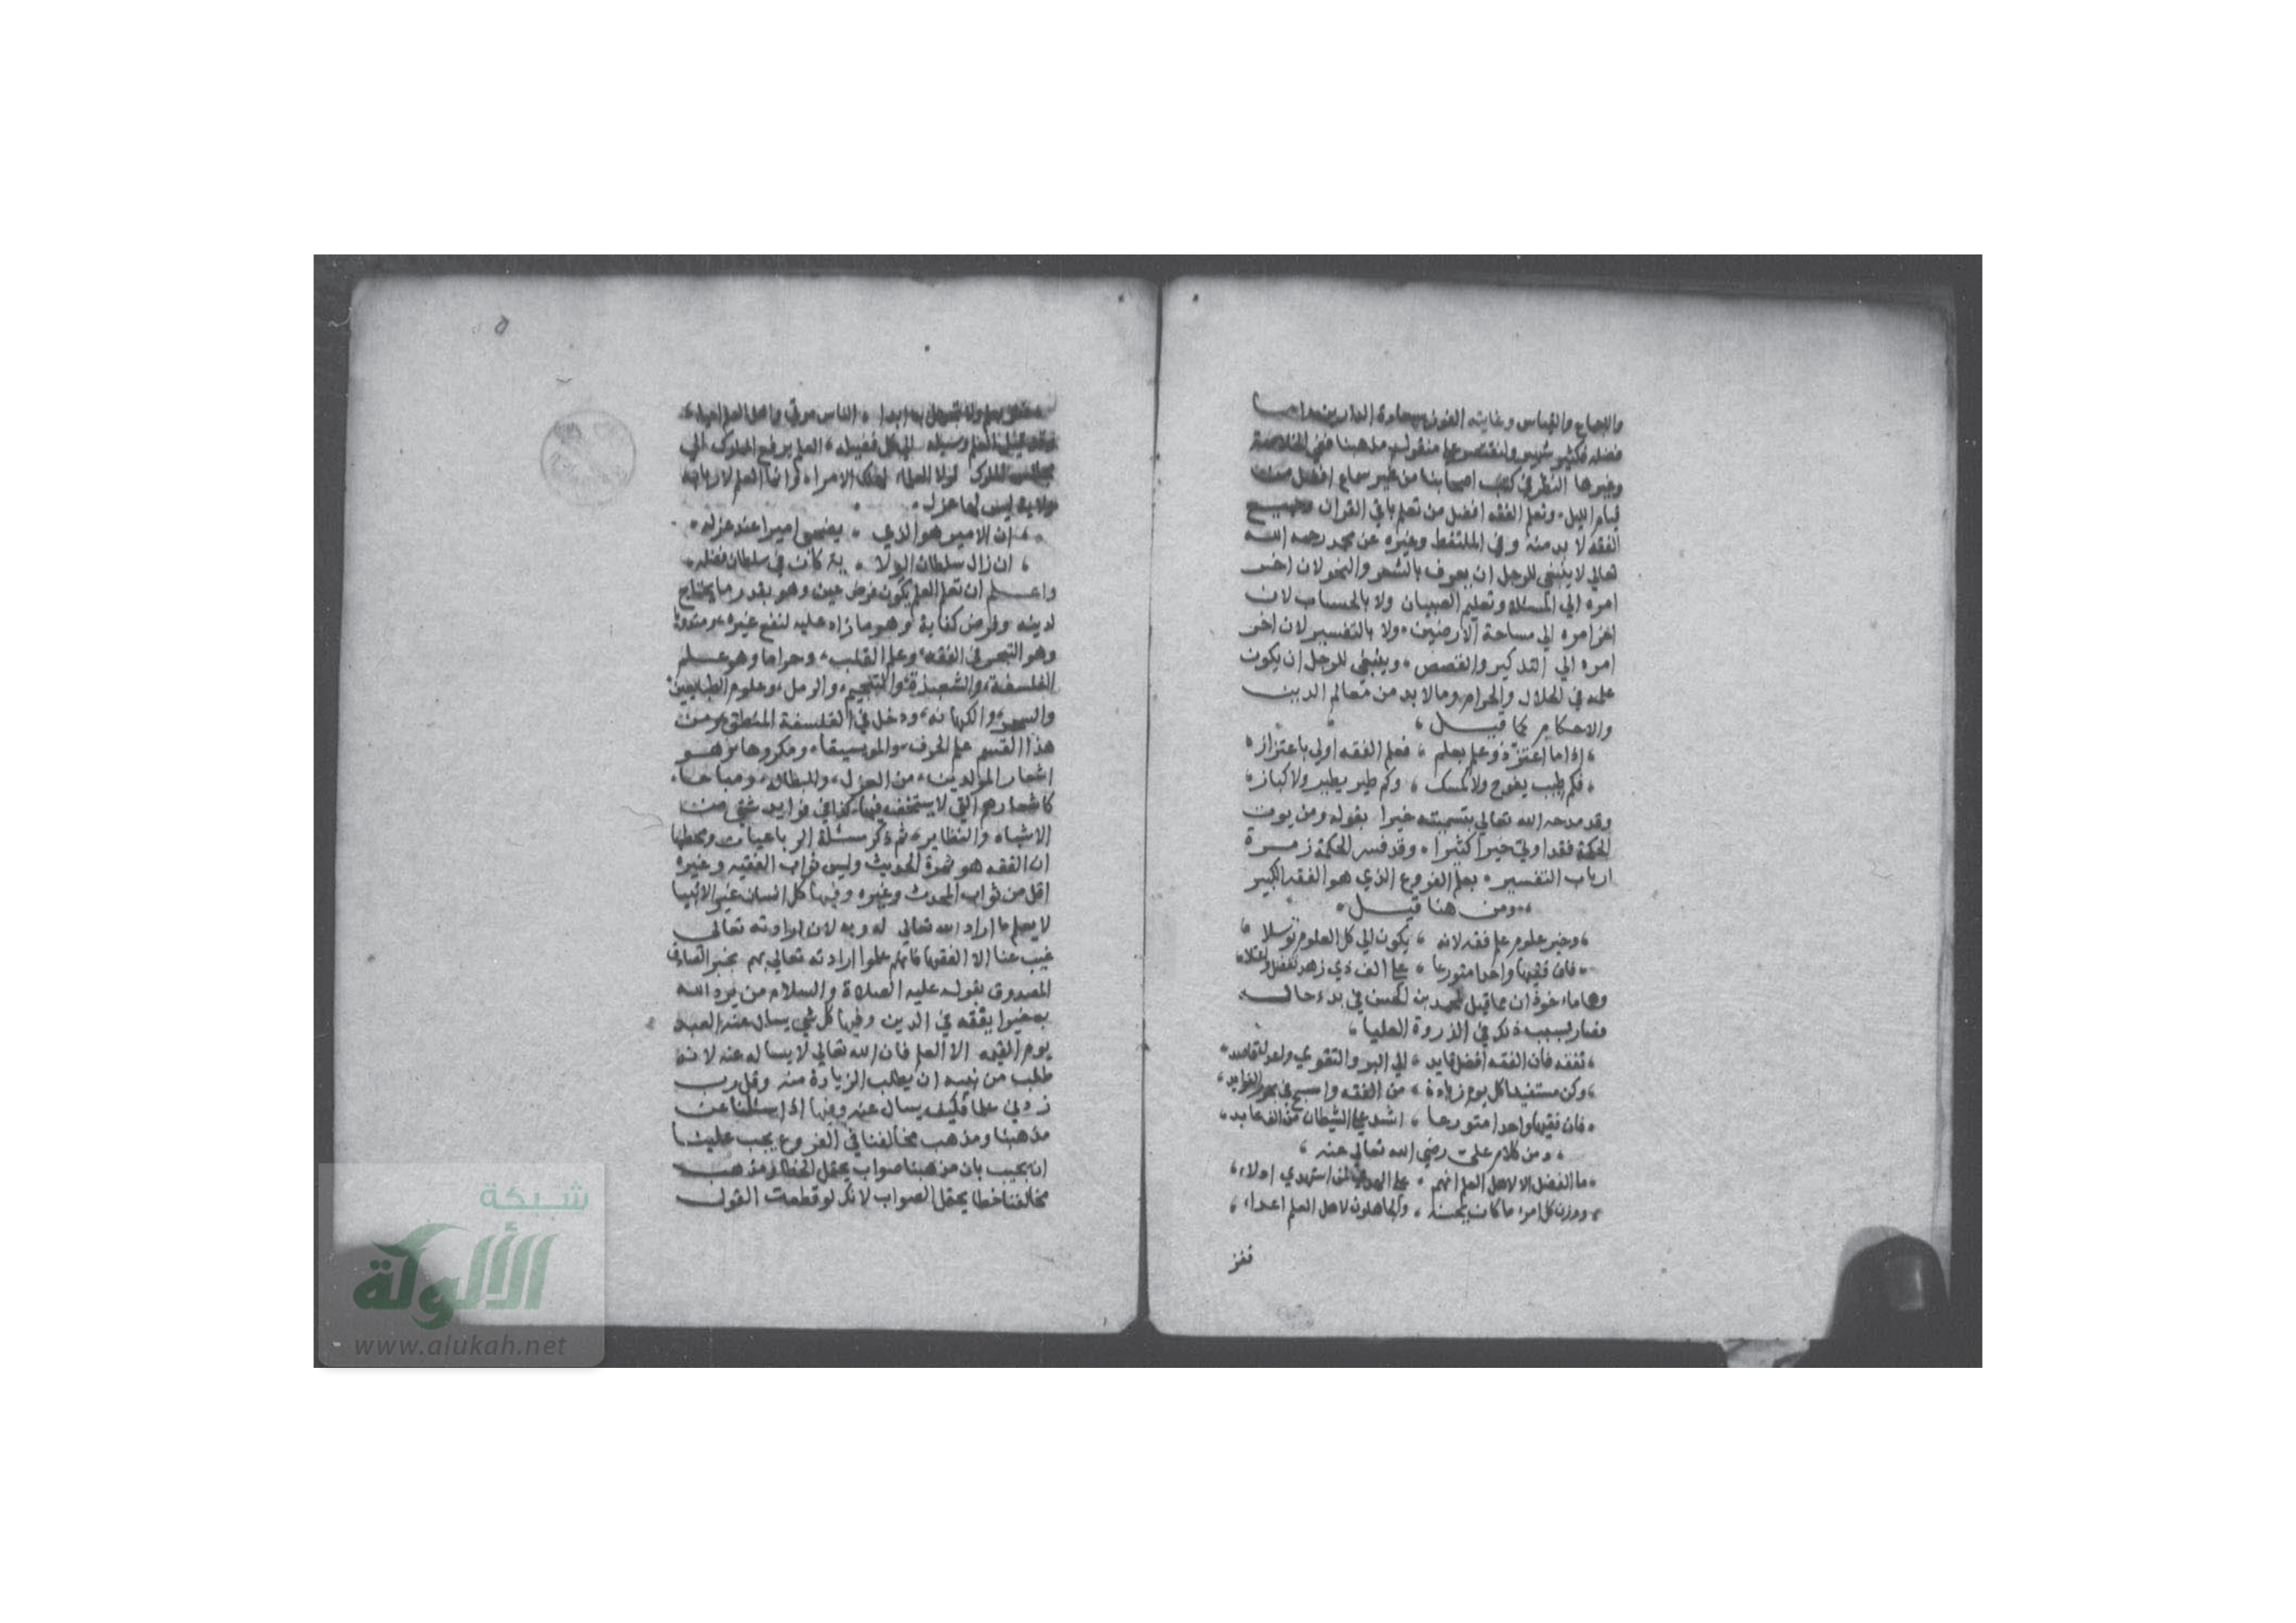 والاجماع والقياس وغايته الفوز بسعادة الدارين واما
فضله فكثير شهير واقتصر على منقول مذهبنا ففي الخلاصة
وغيرها النظر في كتب اصحابنا من غير سماع افضل من
قيام الليل، وتعلم الفقه افضل من تعلم باقي القران وجميع
الفقه لا بد منه وفي الملتقط وغيره عن محمد رحمه الله
تعالي لا ينبغي للرجل ان يعرف بالشعر والنحو لان اخر
امره الي المسئلة وتعليم الصبيان ولا بالحساب لان
اخر امره الي مساحة الارضين، ولا بالتفسير لان اخر
امره الي التذكير والقصص، وينبغي للرجل ان يكون
علمه في الحلال والحرام وما لا بد من تعالم الدين
والاحكام كما قيل،
اذا ما اعتز ذو علم بعلم ، فعلم الفقه اولى باعتزاز،
فكم طيب يفوح ولا كمسك ، وكم طير يطير ولا كباز،
وقد مدحه الله تعالي بتسميته خيرا بقوله ومن يوت
الحكمة فقد اوتي خيرا كثيرا، وقد فسر الحكمة زمرة
ارباب التفسير، بعلم الفروع الذي هو الفقه الكبير
ومن هنا قيل،
وخير علوم علم فقه لانه ، يكون الي كل العلوم توسلا
فان فقيها واحدا متورعا ، على الف ذي زهد تفضل واعتلا
وهاماخوذان مما قيل لمحمد بن الحسن في بدء حاله
فصار بسبب ذلك في الذروة العليا،
تفقه فان الفقه افضل قايد ، الي البر والتقوي واعدل قاصد،
وكن مستفيدا كل يوم زيادة ، من الفقه واسبح في بحور الفوايد،
فان فقيها واحدا متورعا ، اشد على الشيطان من الف عابد،
، ومن كلام علي رضي الله تعالي عنه ،
ما الفضل الا لاهل العلم انهم ، على الهدى لمن استهدي ادلاء،
ووزن كل امرء ما كان يحسنه ، والجاهلون لاهل العلم اعداء،
ففز
٥
ففز بعلم ولا تجهل به ابدا ، الناس موتي واهل العلم احياء،
وقد قيل العلم وسيلة الي كل فضيلة، العلم يرفع المملوك الي
مجالس الملوك لولا العلماء لهلك الامراء وانما العلم لاربابه
ولاية ليس لها عزل
، ان الامير هو الذي ، يضحي اميرا عند عزله،
، ان زال سلطان الولا ، ية كان في سلطان فضله،
واعلم ان تعلم العلم يكون فرض عين وهو بقدر ما يحتاج
لدينه وفرض كفاية وهو ما زاد عليه لنفع غيره، ومندوبا
وهو التبحر في الفقه، وعلم القلب، وحراما وهو علم
الفلسفة، والشعبذة، والتنجيم، والرمل، وعلوم الطبايعيين،
والسحر، والكهانه، ودخل في الفلسفة المنطق، ومن
هذا القسم علم الحرف، والموسيقا، ومكروها وهو
اشعار المولدين، من الغزل، والبطالة، ومباحا،
كاشعارهم التي لا يستخف فيها، كذا في فوايد شتي من
الاشباه والنظاير، ثم ذكر مسئلة الرباعيات ومحطها
ان الفقه هو ثمرة الحديث وليس ثواب الفقيه وغيره
اقل من ثواب المحدث وغيره وفيها كل انسان غير الانبيا
لا يعلم ما اراد الله تعالي له وبه لان ارادته تعالى
غيب عنا الا الفقها فانهم علموا ارادته تعالي بهم بخبر الصادق
المصدوق بقوله عليه الصلاة والسلام من يرد الله
به خيرا يفقه في الدين وفيها كل شي يسال عنه العبد
يوم القيمه الا العلم فان الله تعالي لا يساله عنه لانه
طلب من نبيه ان يطلب الزيادة منه وقل رب
زدني علما فكيف يسال عنه وفيها اذا سئلنا عن
مذهبنا ومذهب مخالفنا في الفروع يجب علينا
ان نجيب بان مذهبنا صواب يحتمل الخطا ومذهب
مخالفنا خطا يحتمل الصواب لانك لو قطعت القول
شبكة
الألوكة
www.alukah.net